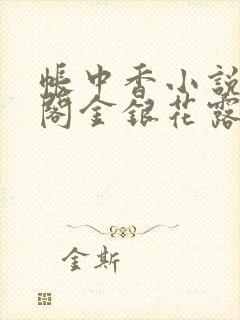 帐中香小説
閣金銀花露
金斯